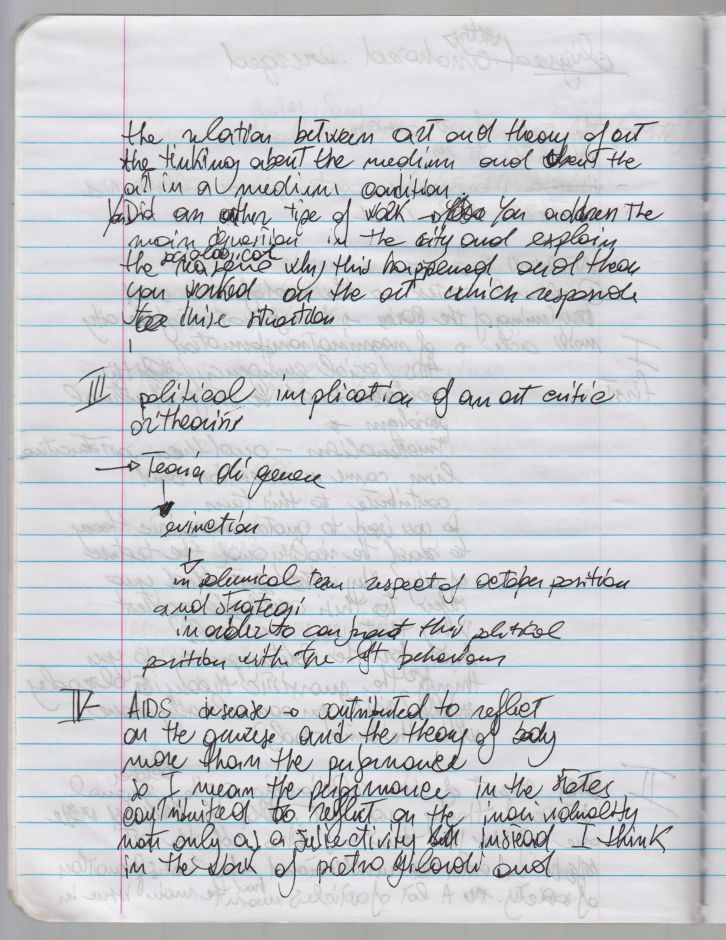 the relation between art and theory of art
the tinking about the medium and about the
art in a medium condition.
You Did an other tipe of work → You address the
main question in the city and explain
sociological
the reasons why this happened and then
you worked on the art which responde
to this situation
III political implication of an art critic
or theorist
→ Teoria di genere
eviction
in polemical term respect of october position
and strategi
in order to compact this political
position with the left behaviour
IV AIDS disease → contributed to reflect
on the and the theory of body
more than the performance
so I mean the performance in the states
contributed to reflect on the individuality
not only as a subjectivity but instead I think
in the work of pietro gilardi and